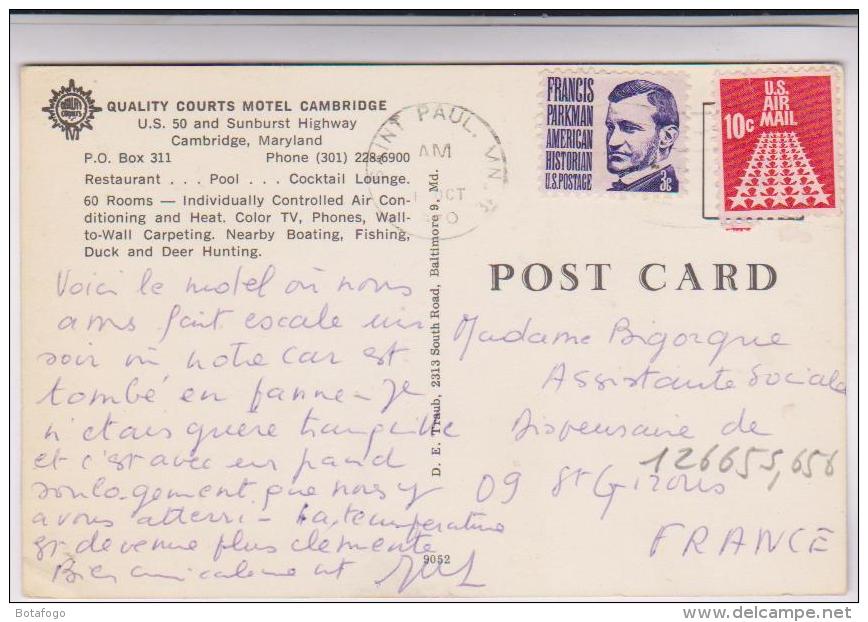 QUALITY COURTS MOTEL CAMBRIDGE
U.S. 50 and Sunburst Highway
Cambridge, Maryland
P.O. Box 311 Phone (301) 228-6900
Restaurant . . . Pool . . . Cocktail Lounge.
60 Rooms — Individually Controlled Air Con-
ditioning and Heat. Color TV, Phones, Wall-
to-Wall Carpeting. Nearby Boating, Fishing,
Duck and Deer Hunting.
Voici le motel où nous
avons fait escale un
soir où notre car est
tombé en panne - Je
n'étais guère tranquille
et c'est avec un grand
soulagement que nous y
avons atterri - La température
est devenue plus clemente
Bien amicalement
D. E. Traub, 2313 South Road, Baltimore 9, Md.
9052
SAINT PAUL, MN
AM
OCT
FRANCIS
PARKMAN
AMERICAN
HISTORIAN
U.S. POSTAGE 3c
U.S.
AIR
MAIL
10c
POST CARD
Madame Bigorgue
Assistante Sociale
Dispensaire de
126655,656
09 St Girons
FRANCE
Botafogo
delcampe.net